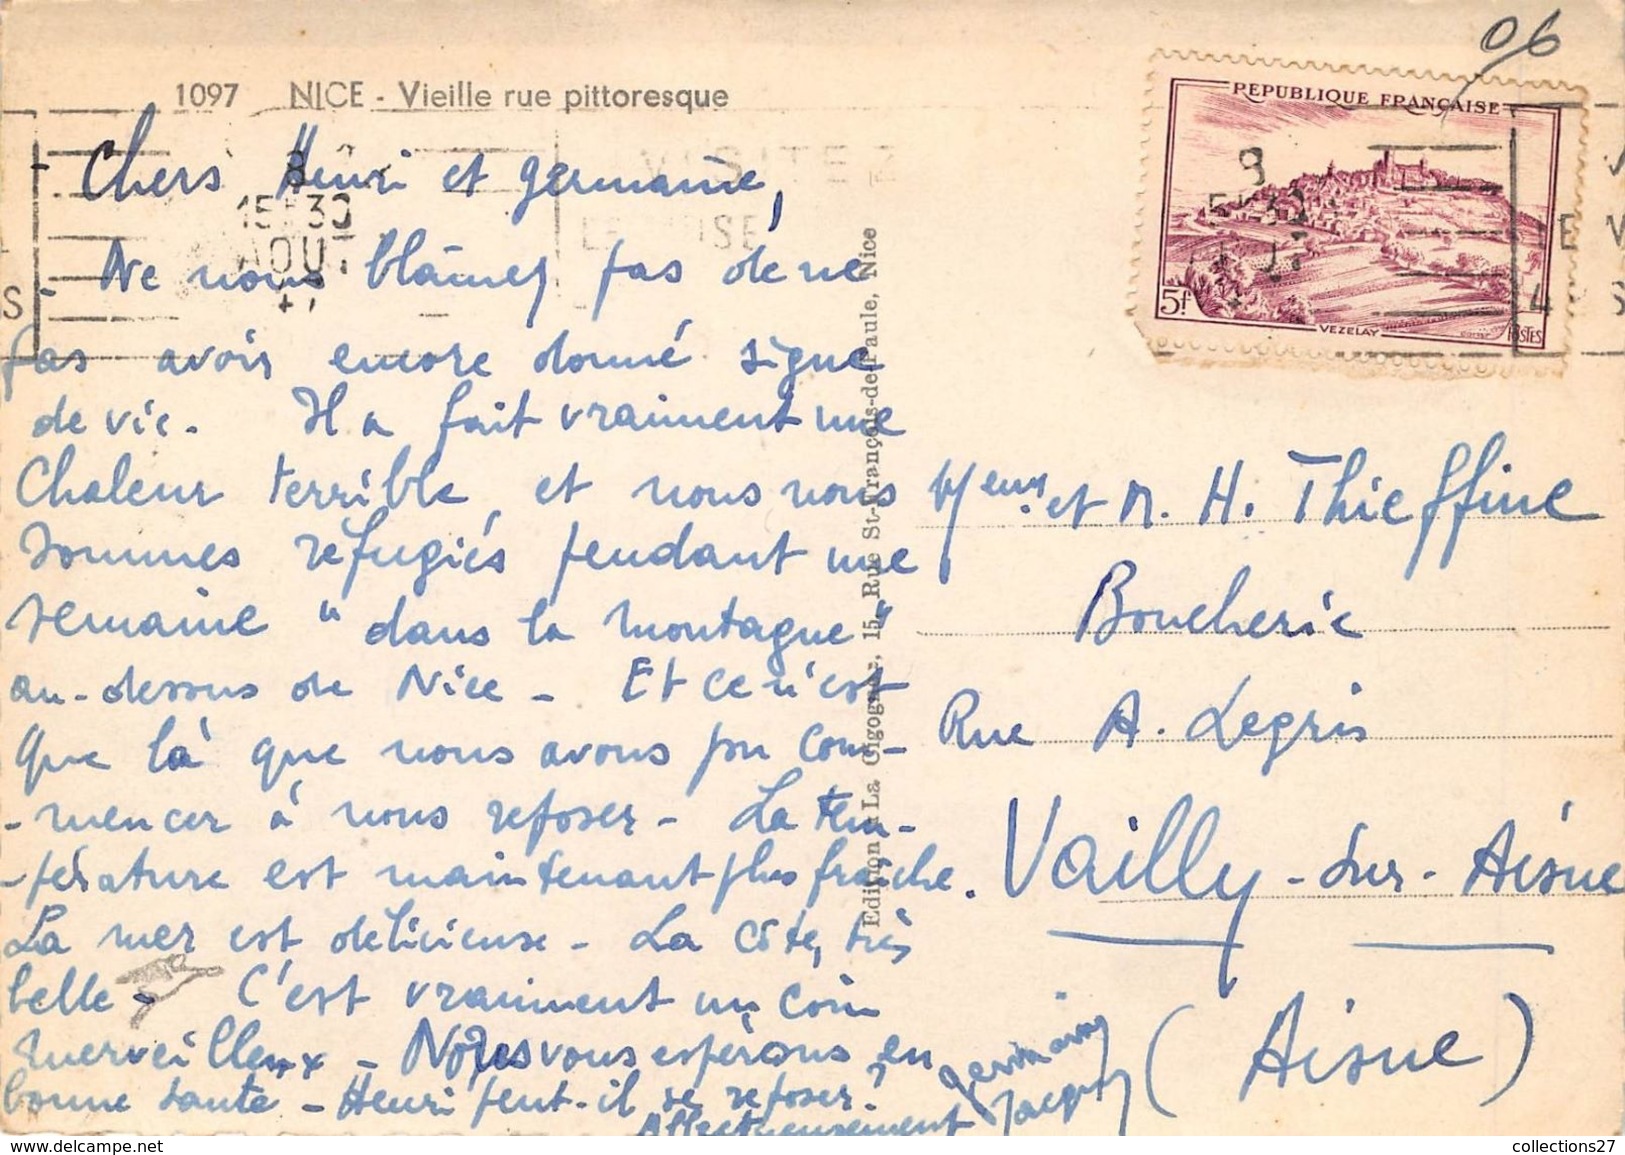 06
1097 NICE - Vieille rue pittoresque
REPUBLIQUE FRANÇAISE
5f
VEZELAY
POSTES
15H30
AOUT
VISITEZ
Chers Henri et Germaine,
- Ne nous blâmez pas de ne
pas avoir encore donné signe
de vie. Il a fait vraiment une
chaleur terrible, et nous nous
sommes réfugiés pendant une
semaine "dans la montagne"
au-dessus de Nice - Et ce n'est
que là que nous avons pu com-
-mencer à nous reposer - La tem-
-pérature est maintenant plus fraîche.
La mer est délicieuse - La côte, très
belle - C'est vraiment un coin
merveilleux - Nous vous espérons en
bonne santé - Henri peut-il se reposer?
Affectueusement
Jacques
Edition La Cigogne, 15, Rue St-François-de-Paule, Nice
et M. H. Thieffine
Boucherie
Rue A. Legris
Vailly-sur-Aisne
(Aisne)
collections27